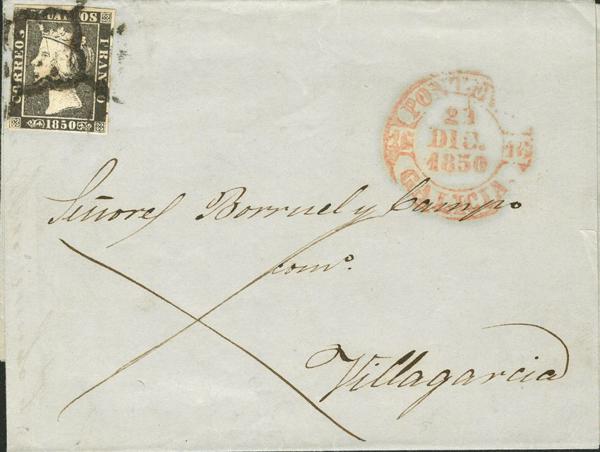 CORREOS 6 CUARTOS FRANCO
1850
PONTE
16 21 16
DIC.
1850
GALICIA
Señores Borruel y Camp.o
com.o
Villagarcia